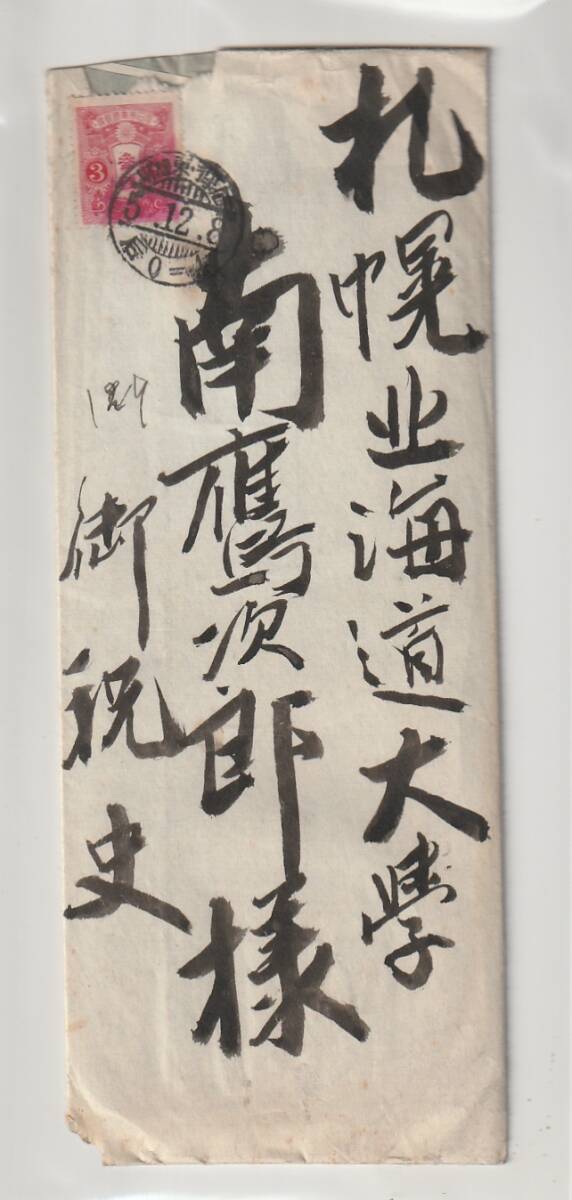 札幌北海道大學
南鷹次郎様
御祝史
3
5.12.8